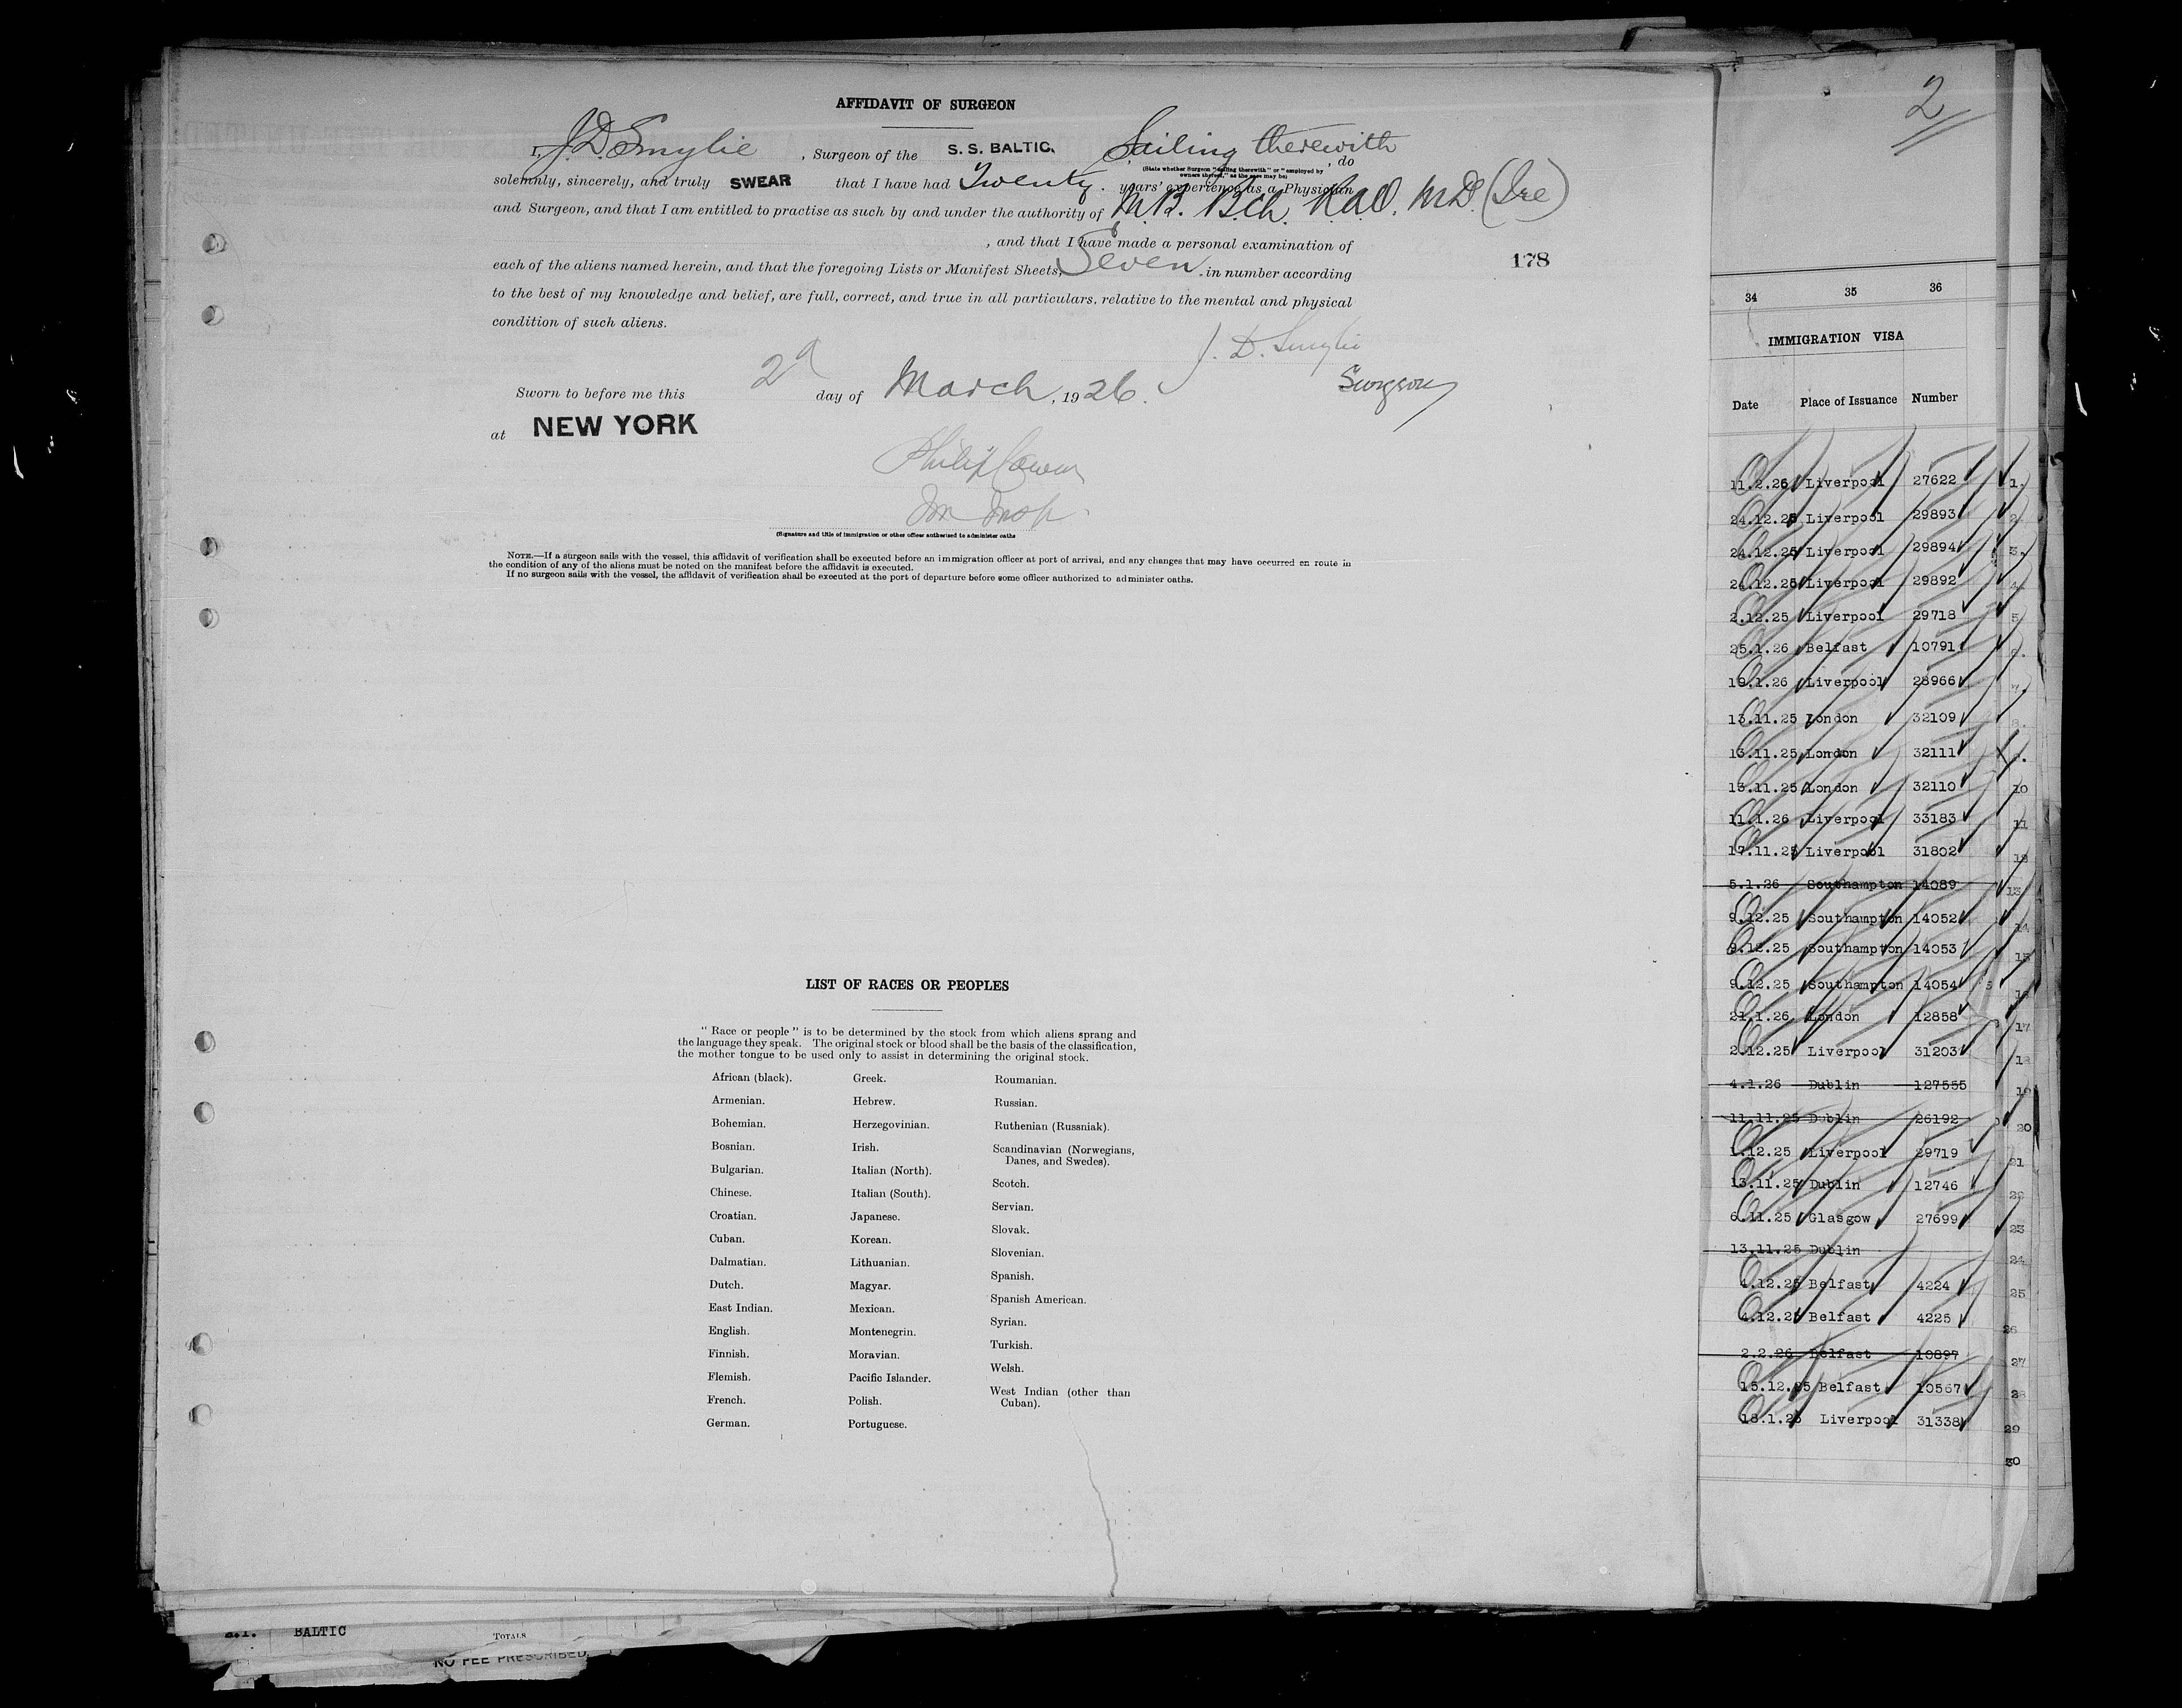 AFFIDAVIT OF SURGEON
I, J. D. Smylie, Surgeon of the S. S. BALTIC. Sailing therewith, do
(State whether Surgeon "sailing therewith" or "employed by owners thereof," as the case may be)
solemnly, sincerely, and truly SWEAR that I have had Twenty. years' experience as a Physician
and Surgeon, and that I am entitled to practise as such by and under the authority of M.B. B.ch. R.U.I. M.D. (Ire)
, and that I have made a personal examination of
each of the aliens named herein, and that the foregoing Lists or Manifest Sheets, Seven. in number according
to the best of my knowledge and belief, are full, correct, and true in all particulars, relative to the mental and physical
condition of such aliens.
178
J. D. Smylie
Surgeon
Sworn to before me this 2d day of March, 1926.
at NEW YORK
Philip Cowen
Im Insp.
(Signature and title of immigration or other officer authorized to administer oaths
NOTE.—If a surgeon sails with the vessel, this affidavit of verification shall be executed before an immigration officer at port of arrival, and any changes that may have occurred en route in
the condition of any of the aliens must be noted on the manifest before the affidavit is executed.
If no surgeon sails with the vessel, the affidavit of verification shall be executed at the port of departure before some officer authorized to administer oaths.
LIST OF RACES OR PEOPLES
"Race or people" is to be determined by the stock from which aliens sprang and
the language they speak. The original stock or blood shall be the basis of the classification,
the mother tongue to be used only to assist in determining the original stock.
African (black).
Armenian.
Bohemian.
Bosnian.
Bulgarian.
Chinese.
Croatian.
Cuban.
Dalmatian.
Dutch.
East Indian.
English.
Finnish.
Flemish.
French.
German.
Greek.
Hebrew.
Herzegovinian.
Irish.
Italian (North).
Italian (South).
Japanese.
Korean.
Lithuanian.
Magyar.
Mexican.
Montenegrin.
Moravian.
Pacific Islander.
Polish.
Portuguese.
Roumanian.
Russian.
Ruthenian (Russniak).
Scandinavian (Norwegians,
Danes, and Swedes).
Scotch.
Servian.
Slovak.
Slovenian.
Spanish.
Spanish American.
Syrian.
Turkish.
Welsh.
West Indian (other than
Cuban).
BALTIC TOTALS
NO FEE PRESCRIBED
2
34 35 36
IMMIGRATION VISA
Date Place of Issuance Number
11.2.26 Liverpool 27622 1.
24.12.25 Liverpool 29893 2
24.12.25 Liverpool 29894 3.
24.12.25 Liverpool 29892 4
2.12.25 Liverpool 29718 5
25.1.26 Belfast 10791
18.1.26 Liverpool 28966 7.
13.11.25 London 32109 8.
13.11.25 London 32111
13.11.25 London 32110 10
11.1.26 Liverpool 33183 11
17.11.25 Liverpool 31802 12
5.1.26 Southampton 14089 13
9.12.25 Southampton 14052 14
9.12.25 Southampton 14053 15
9.12.25 Southampton 14054 16
21.1.26 London 12858 17
2.12.25 Liverpool 31203 18
4.1.26 Dublin 127555 19
11.11.25 Dublin 26192 20
1.12.25 Liverpool 29719 21
13.11.25 Dublin 12746 22
6.11.25 Glasgow 27699 23
13.11.25 Dublin 24
4.12.25 Belfast 4224 25
4.12.25 Belfast 4225 26
2.2.26 Belfast 10897 27
15.12.25 Belfast 10567 28
18.1.26 Liverpool 31338 29
30